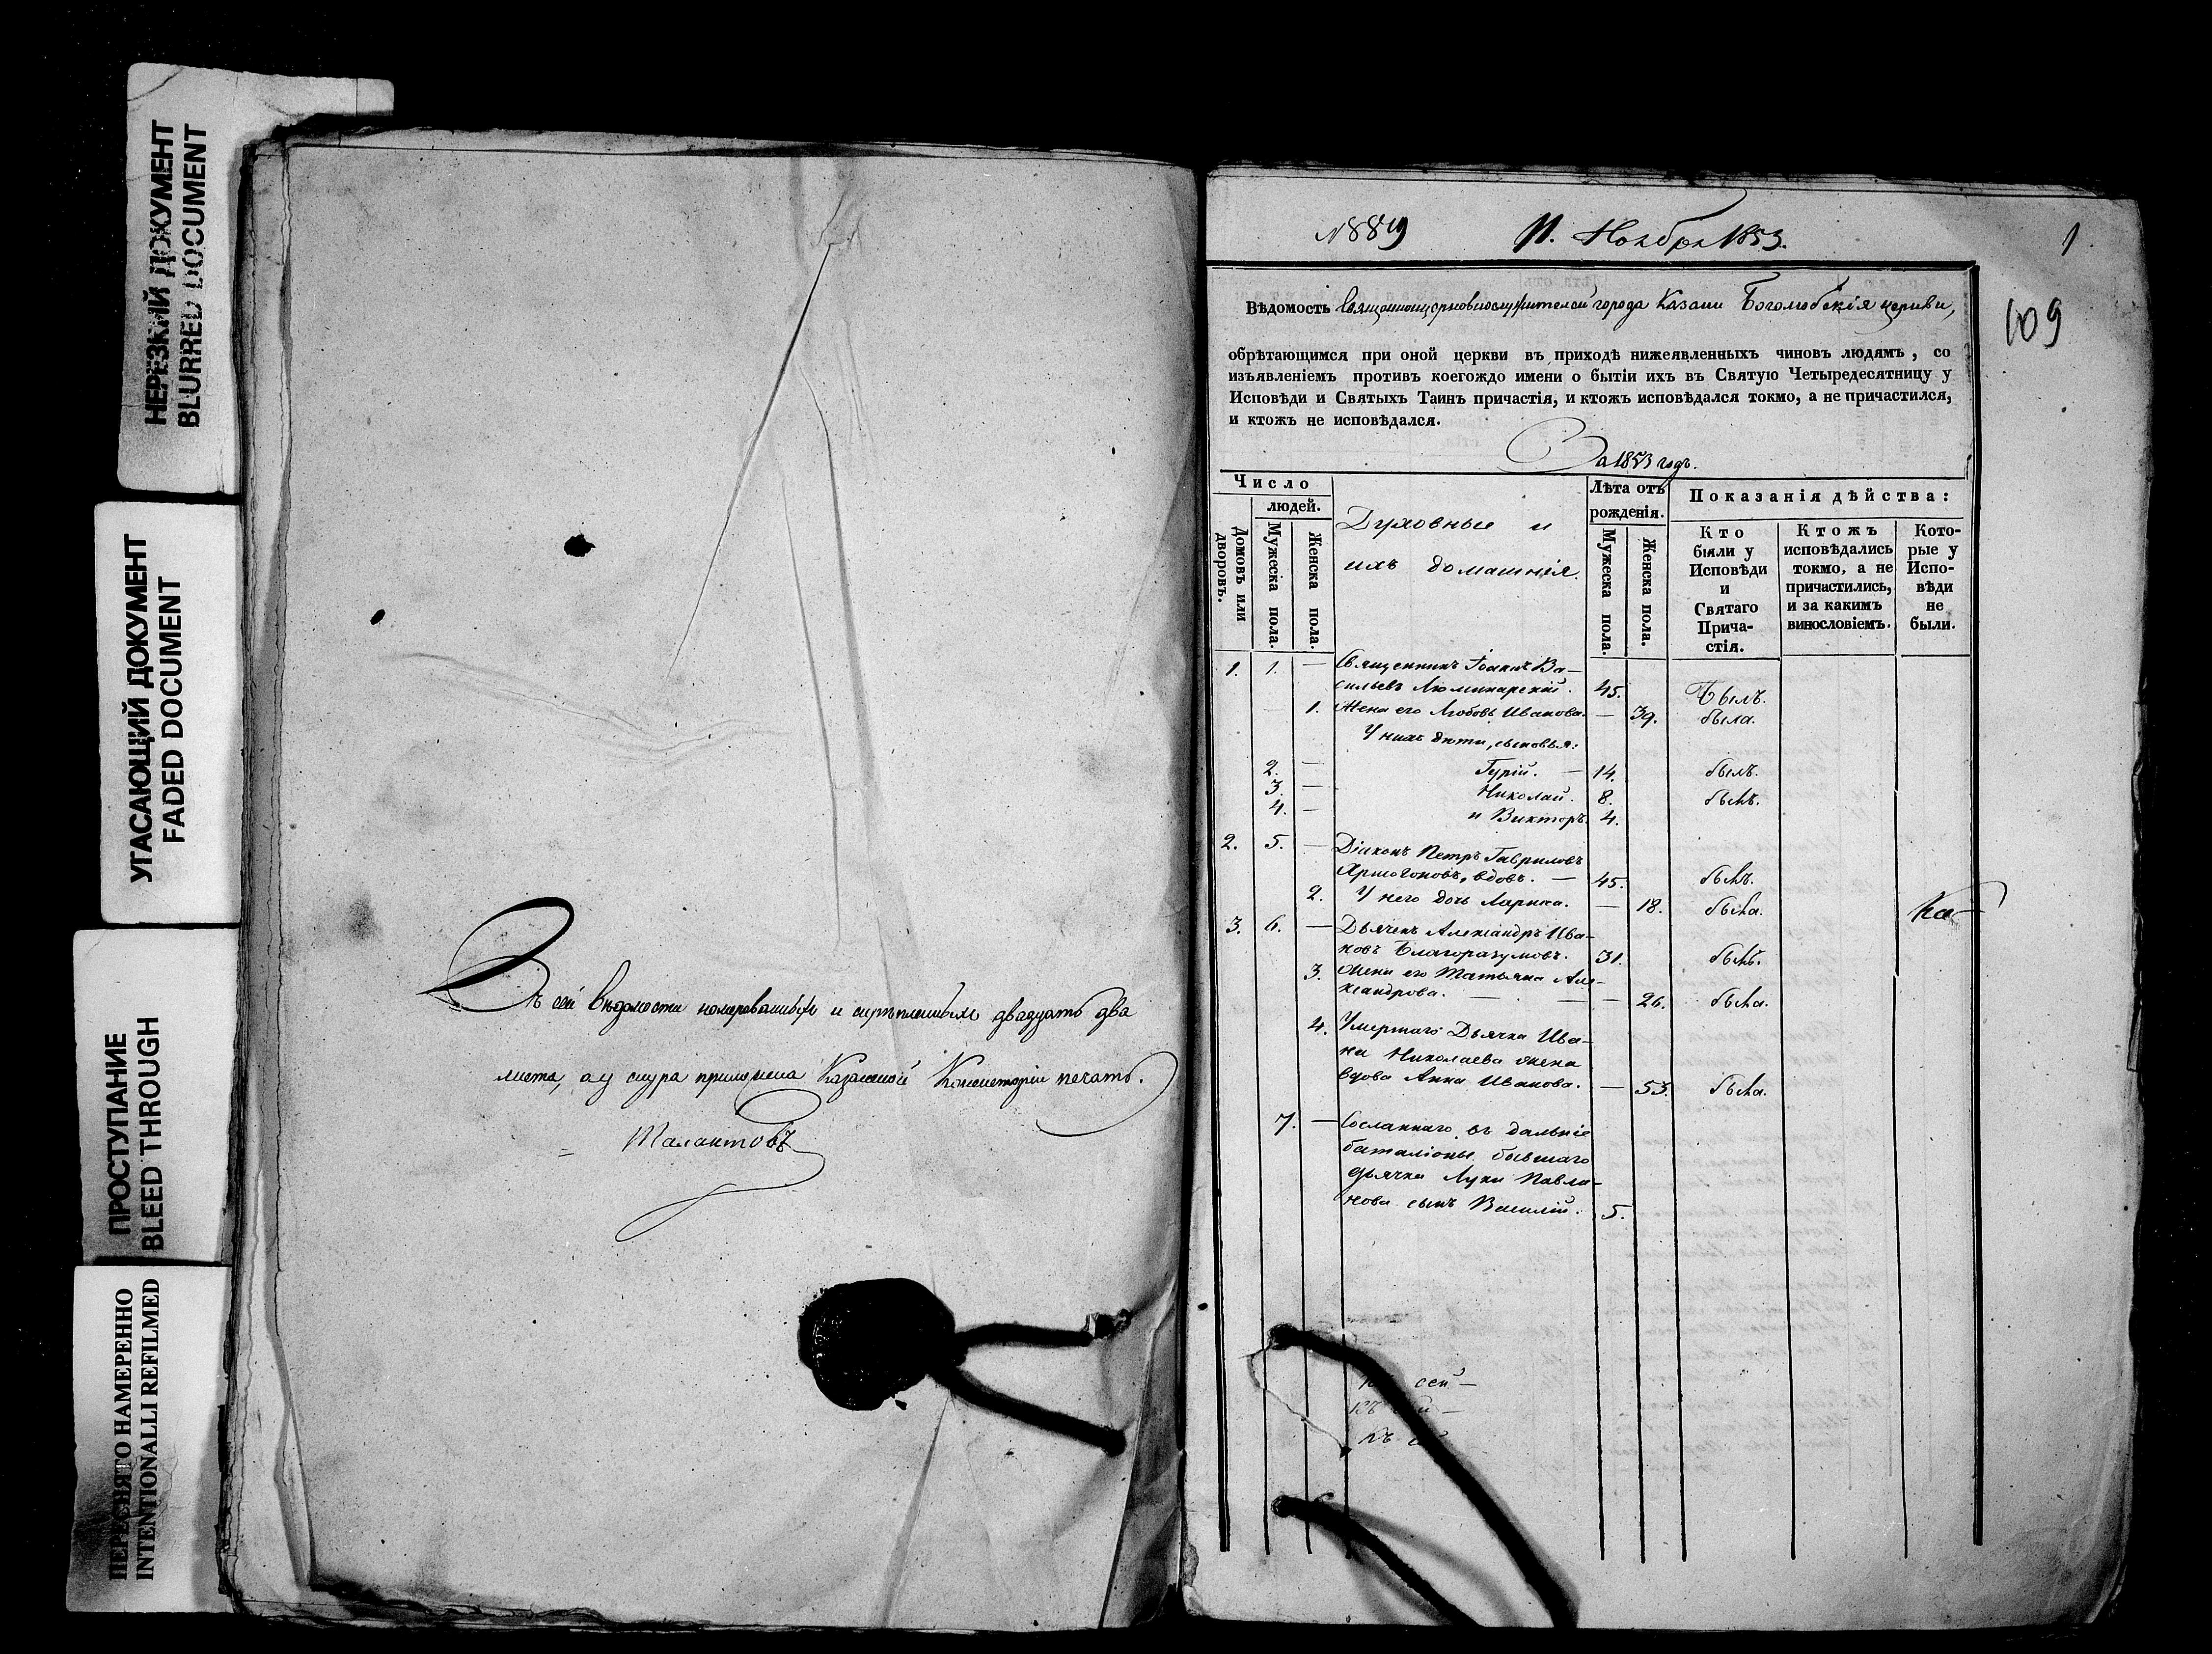 НЕРЕЗКИЙ ДОКУМЕНТ
BLURRED DOCUMENT
УГАСАЮЩИЙ ДОКУМЕНТ
FADED DOCUMENT
ПРОСТУПАНИЕ
BLEED THROUGH
ПЕРЕСНЯТО НАМЕРЕННО
INTENTIONALLI REFILMED
Въ сей вѣдомости номерованныхъ и скрѣпленныхъ двадцать два
листа, а у снура приложена Казанской Консисторіи печать.
Талантовъ
№ 889 11. Ноября 1853. 1
109
Вѣдомость Священноцерковнослужителей города Казани Боголюбскія церкви,
обрѣтающимся при оной церкви въ приходѣ нижеявленныхъ чиновъ людямъ, со
изъявленіемъ противъ коегождо имени о бытіи ихъ въ Святую Четыредесятницу у
Исповѣди и Святыхъ Таинъ причастія, и ктожъ исповѣдался токмо, а не причастился,
и ктожъ не исповѣдался.
За 1853 годъ.
Число
людей.
Домовъ или дворовъ.
Мужеска пола.
Женска пола.
Духовные и
ихъ домашнія.
Лѣта отъ
рожденія.
Мужеска пола.
Женска пола.
Показанія дѣйства:
Кто
были у
Исповѣди
и
Святаго
Прича-
стія.
Ктожъ
исповѣдались
токмо, а не
причастились,
и за какимъ
винословіемъ.
Кото-
рые у
Испо-
вѣди
не
были.
1. 1. — Священникъ Іоаннъ Ва-
сильевъ Люминарскій. 45. Былъ.
1. Жена его Любовь Иванова. — 39. была.
У нихъ дѣти, сыновья:
2. — Гурій. — 14. былъ.
3. — Николай. 8. былъ.
4. — и Викторъ. 4.
2. 5. — Діаконъ Петръ Гавриловъ
вдовъ. — 45. былъ.
2. У него дочь Лариса. — 18. была.
3. 6. — Дьячекъ Александръ Ива-
новъ Благоразумовъ. 31. былъ.
3. Жена его Татьяна Але-
ксандрова. — — 26. была.
4. Умершаго Дьячка Ива-
на Николаева жена
вдова Анна Иванова. — 53. была.
7. — Сосланнаго въ дальніе
баталіоны бывшаго
дьячка Луки Павли-
нова сынъ Василій. 5.
Ка-
сей —
Къ —
Къ